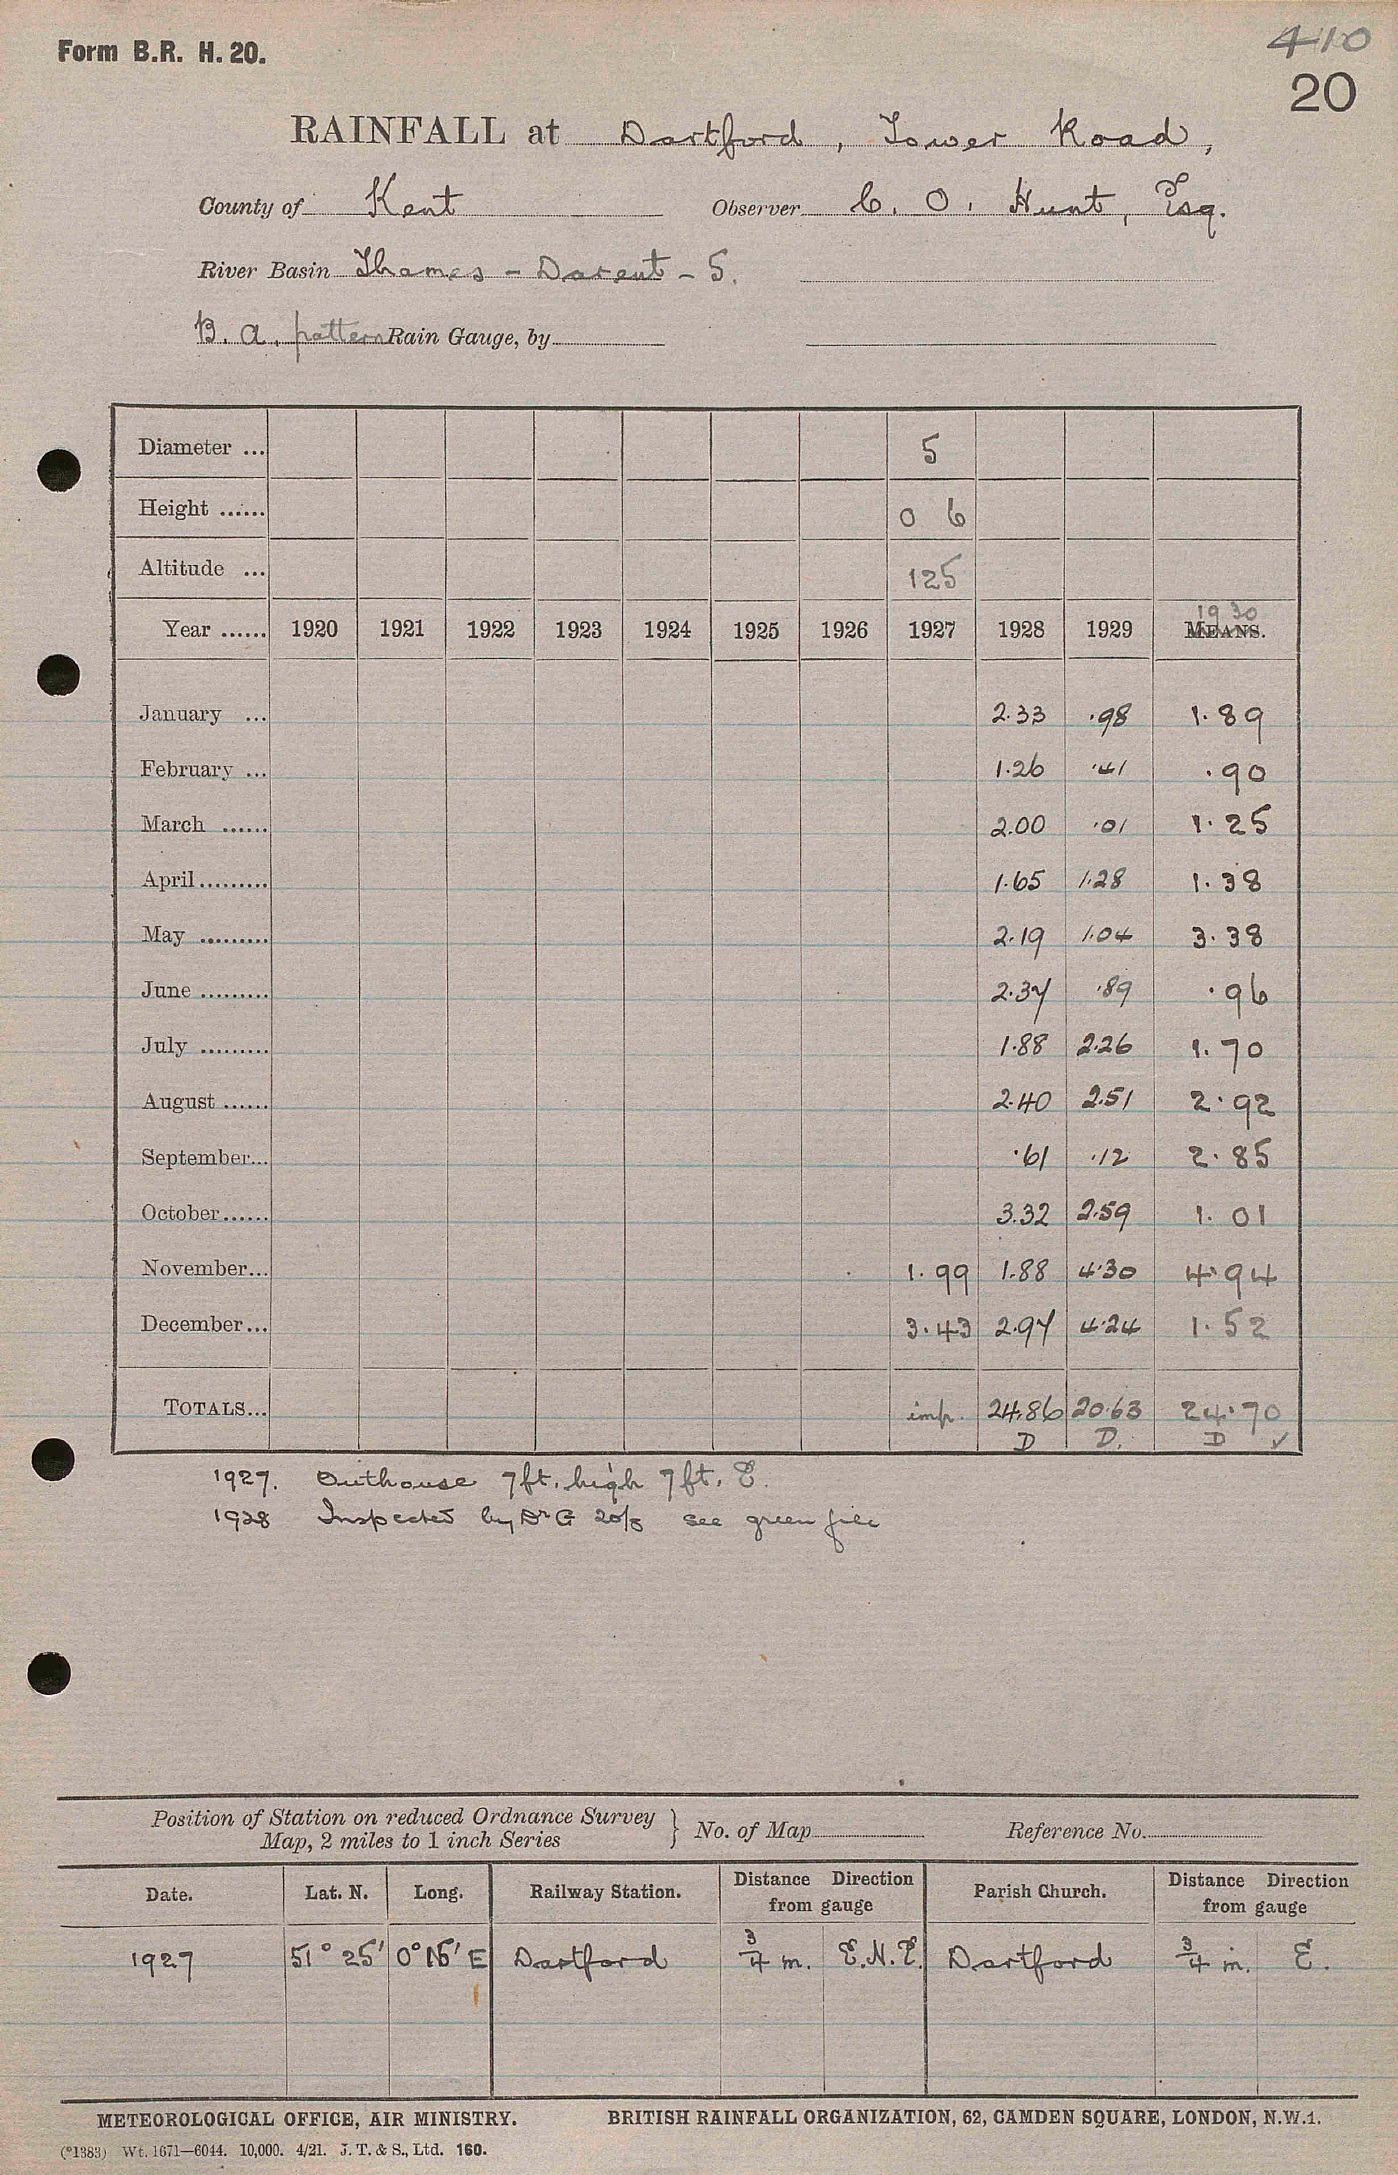 Form B.R. H. 20.
410
20
RAINFALL at Dartford, Tower Road,
County of Kent Observer C. O. Hunt, Esq.
River Basin Thames - Darent - 5.
B. a. pattern Rain Gauge, by
Diameter ... 5
Height ...... 0 6
Altitude ... 125
1930
Year ...... 1920 1921 1922 1923 1924 1925 1926 1927 1928 1929 MEANS.
January ... 2.33 .98 1.89
February ... 1.26 .41 .90
March ...... 2.00 .01 1.25
April ......... 1.65 1.28 1.38
May ......... 2.19 1.04 3.38
June ......... 2.37 .89 .96
July ......... 1.88 2.26 1.70
August ...... 2.40 2.51 2.92
September... .61 .12 2.85
October ...... 3.32 2.59 1.01
November... 1.99 1.88 4.30 4.94
December... 3.43 2.97 4.24 1.52
TOTALS... imp. 24.86 20.63 24.70
D D. D ✓
1927. Outhouse 7ft. high 7ft. E.
1928 Inspected by Dr G 20/8 see green file
Position of Station on reduced Ordnance Survey
Map, 2 miles to 1 inch Series } No. of Map Reference No.
Date. Lat. N. Long. Railway Station. Distance Direction from gauge Parish Church. Distance Direction from gauge
1927 51° 25' 0° 15' E Dartford 3/4 m. E.N.E. Dartford 3/4 m. E.
METEOROLOGICAL OFFICE, AIR MINISTRY. BRITISH RAINFALL ORGANIZATION, 62, CAMDEN SQUARE, LONDON, N.W.1.
(*1383) Wt. 1671—6044. 10,000. 4/21. J. T. & S., Ltd. 160.